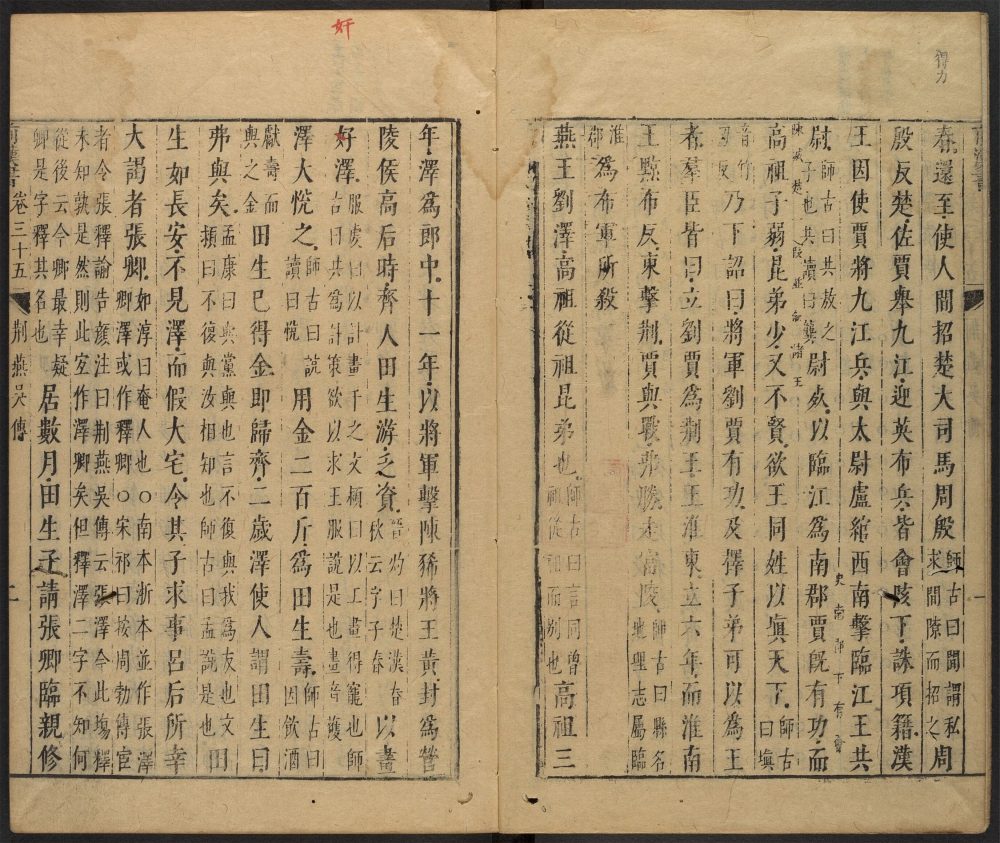 得力
春還至使人間招楚大司馬周殷師古曰間謂私求間隙而招之周
殷反楚佐賈舉九江迎英布兵皆會陔下誅項籍漢
王因使賈將九江兵與太尉盧綰西南擊臨江王共
尉師古曰共敖之子也共讀曰龔尉死以臨江爲南郡賈旣有功而
高祖子弱昆弟少又不賢欲王同姓以塡天下師古曰塡
音竹刃反乃下詔曰將軍劉賈有功及擇子弟可以爲王
者羣臣皆曰立劉賈爲荆王王淮東立六年而淮南
王黥布反東擊荆賈與戰弗勝走富陵師古曰縣名地理志屬臨
淮郡爲布軍所殺
燕王劉澤高祖從祖昆弟也師古曰言同曾祖從祖而别也高祖三
奸
年澤爲郎中十一年以將軍擊陳豨將王黃封爲營
陵侯高后時齊人田生游乏資晉灼曰楚漢春秋云字子春以畫
奸澤服虔曰以計畫干之文穎曰以工畫得寵也師古曰共爲計策欲以求王服說是也畫音獲
澤大悅之師古曰說讀曰悅用金二百斤爲田生壽師古曰因飲酒
獻壽而與之金田生已得金即歸齊二歲澤使人謂田生曰
弗與矣孟康曰與黨與也言不復與我爲友也文穎曰不復與汝相知也師古曰孟說是也田
生如長安不見澤而假大宅令其子求事呂后所幸
大謁者張卿如淳曰奄人也○南本浙本並作張澤卿澤或作釋卿○宋祁曰按周勃傳宦
者令張釋諭告顔注曰荆燕吳傳云張澤今此塲釋未知孰是然則此室作澤卿矣但釋澤二字不知何
從後云今卿最幸疑卿是字釋其名也居數月田生子請張卿臨親修
前漢書 卷三十五 荆燕吳傳